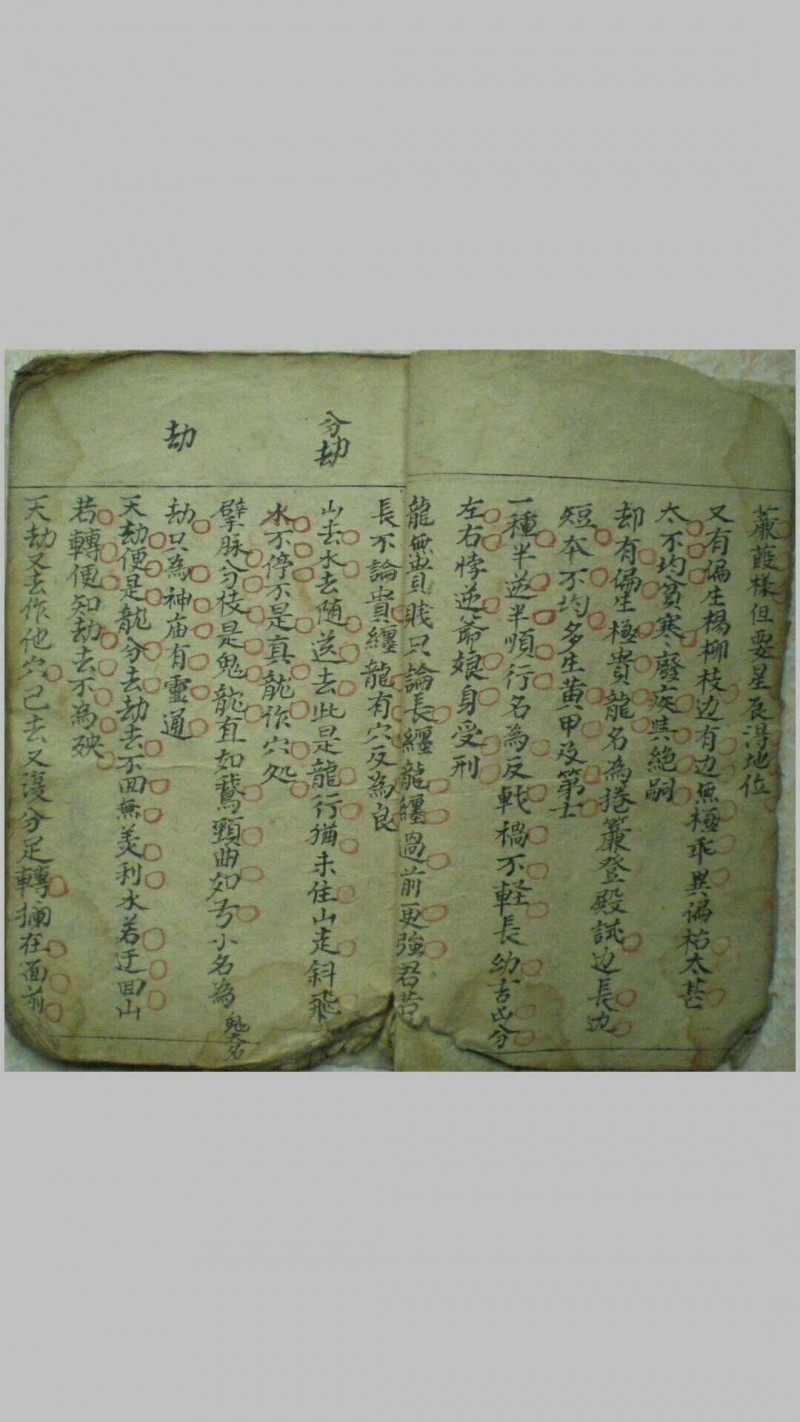 蒹葭樣但要星辰淂地位
又有偏生楊柳枝边有边無極乖異偏枯太甚
太不均貧寒廢疾與絕嗣
却有偏生極貴龍名為捲簾登殿試边長边
短本不均多生黄甲及第士
一種半逆半順行名為反戟禍不輕長幼吉凶分
左右悖逆爺娘身受刑
龍無貴賎只論長纏龍纏過前更強君若
長不論貴纏龍有穴反為良
分劫
山去水去随送去此是龍行猶未住山走斜飛
水不停不是真龍作穴処
擘脉分枝是鬼龍直如鵞頸曲如弓小名為鬼大名
劫
劫只為神庙有靈通
天劫便是龍分去劫去不回無美利水若迂回山
若轉便知劫去不為殃
天劫又去作他穴己去又復分足轉攔在面前